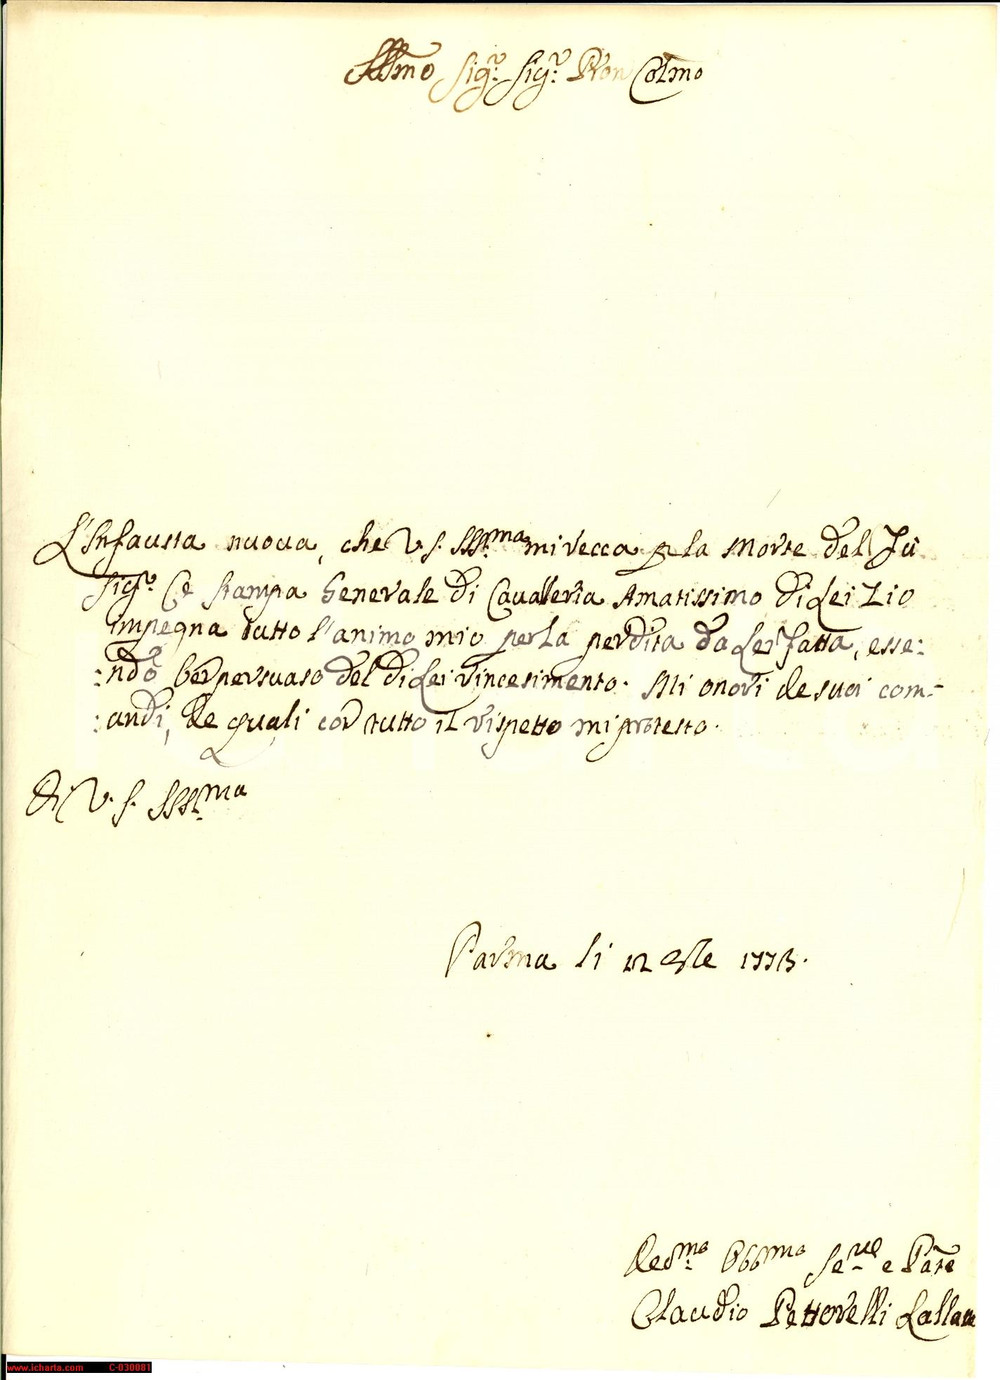 Illmo Sigr: Sigr: Pron Colmo
L'Infausta nuova, che V. S. Illma mi recca p la Morte del Fù
Sigr Cē Stampa Generale di Cavalleria Amatissimo di Lei Zio
impegna tutto l'animo mio per la perdita da Lei fatta, esse:
:ndo ben persuaso del di Lei rincresimento. Mi onori de suoi com-
:andi, de quali con tutto il rispetto mi protesto.
Di V. S. Illma
Parma li 12 1773.
Devmo Obbmo Serve e Parte
Claudio Pettorelli Lallatta
www.icharta.com C-030081